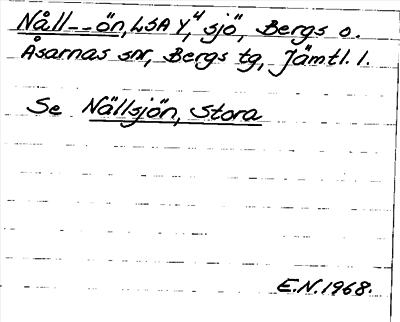 Nåll--ön, LSA Y, "sjö", Bergs o.
Åsarnas snr, Bergs tg, Jämtl. l.
Se Nållsjön, Stora
E.N. 1968.